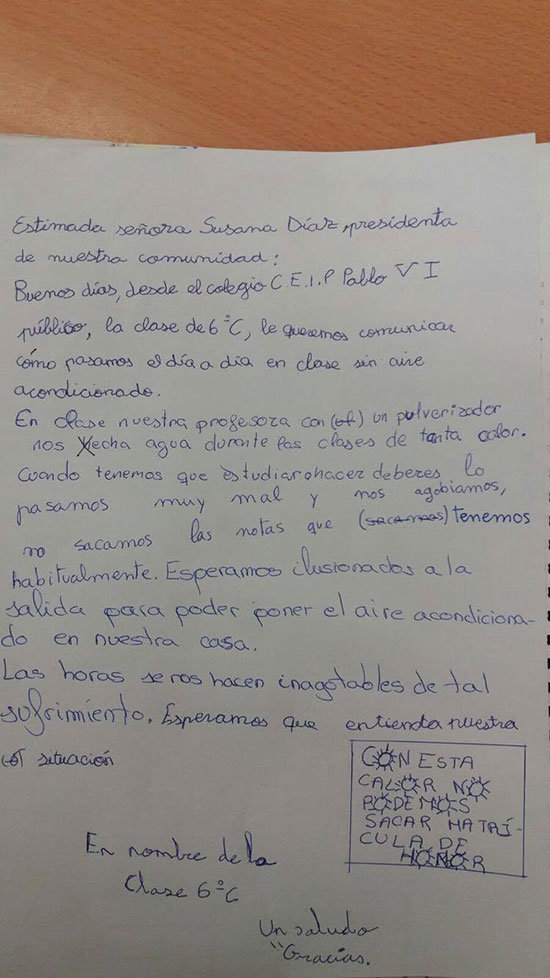 Estimada señora Susana Díaz, presidenta
de nuestra comunidad:
Buenos días, desde el colegio C.E.I.P Pablo VI
público, la clase de 6ºC, le queremos comunicar
cómo pasamos el día a día en clase sin aire
acondicionado.
En clase nuestra profesora con (el) un pulverizador
nos echa agua durante las clases de tanta calor.
Cuando tenemos que estudiar o hacer deberes lo
pasamos muy mal y nos agobiamos,
no sacamos las notas que (sacamos) tenemos
habitualmente. Esperamos ilusionados a la
salida para poder poner el aire acondiciona-
do en nuestra casa.
Las horas se nos hacen inagotables de tal
sufrimiento. Esperamos que entienda nuestra
situación
CON ESTA
CALOR NO
PODEMOS
SACAR MATRÍ-
CULA DE
HONOR
En nombre de la
Clase 6ºC
Un saludo
"Gracias.